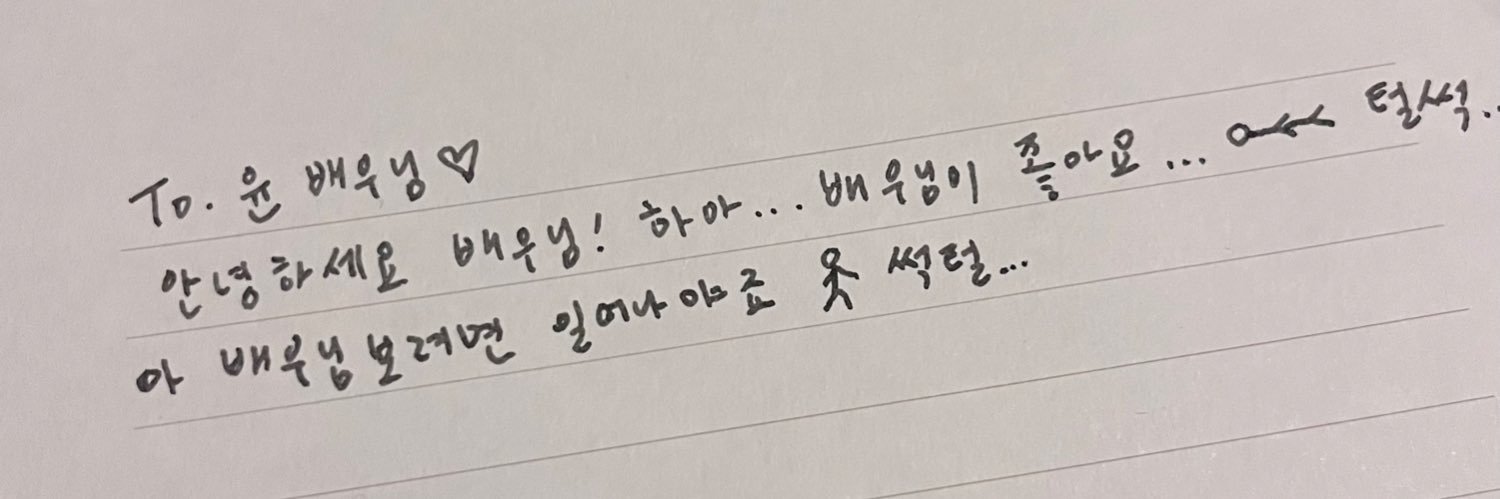 To. 윤 배우님♡
안녕하세요 배우님! 하아... 배우님이 좋아요... 털썩..
아 배우님보려면 일어나야죠 웃 썩털...